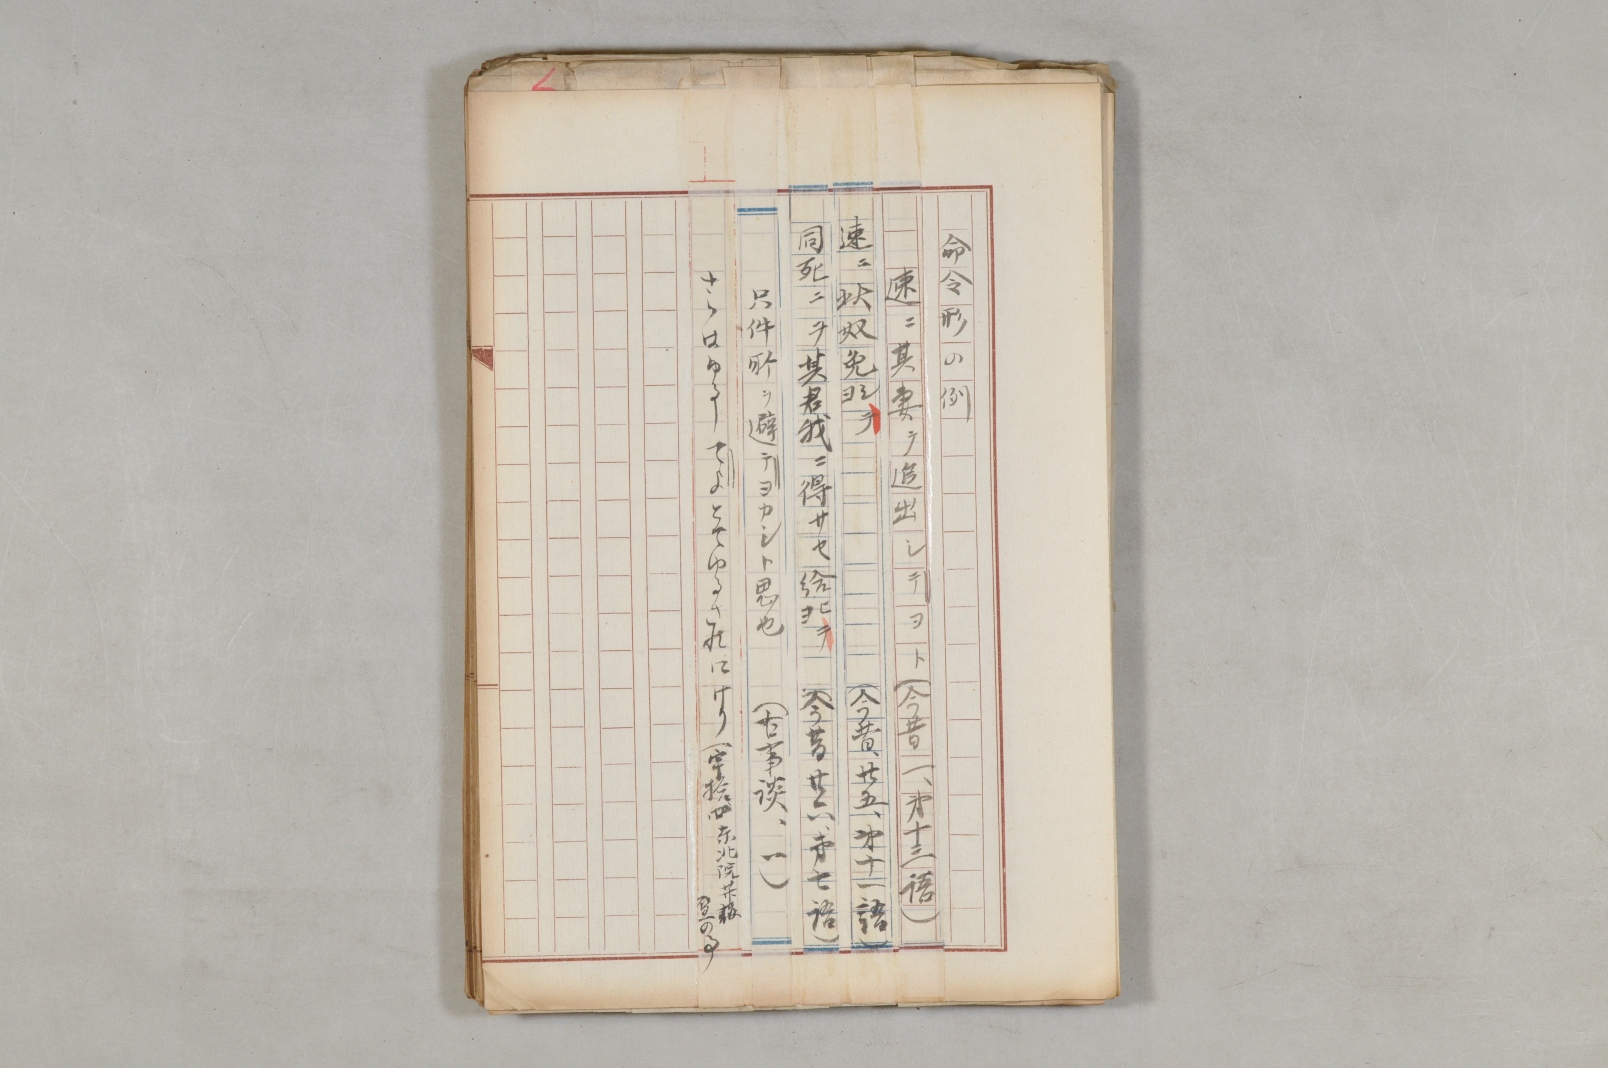 命令形の例
速ニ其妻ヲ追出シテヨト(今昔一、第十三語)
速ニ状奴免シテヨ(今昔、廿五、第十一語)
同死ニヲ其君我ニ得サセ給ヒテヨ(今昔廿六、第七語)
只件所ヲ避テヨカシト思也(古事談、一)
さらはゆるしてよとてゆるされにけり(宇拾四東北院菩提